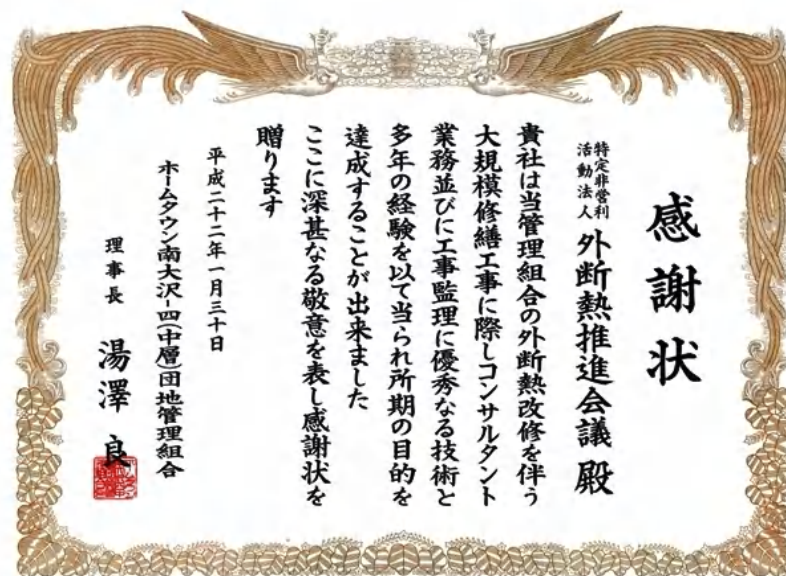 感謝状
特定非営利
活動法人
外断熱推進会議 殿
貴社は当管理組合の外断熱改修を伴う
大規模修繕工事に際しコンサルタント
業務並びに工事監理に優秀なる技術と
多年の経験を以て当られ所期の目的を
達成することが出来ました
ここに深甚なる敬意を表し感謝状を
贈ります
平成二十二年一月三十日
ホームタウン南大沢-四(中層)団地管理組合
理事長 湯澤 良